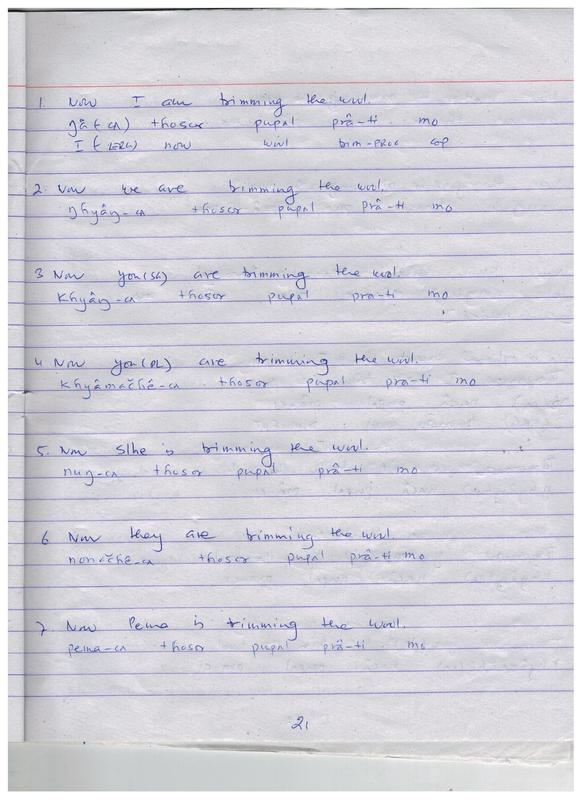 1. Now I am trimming the wool.
ŋâ(-ca) thosor pupal prâ-ti mo
I (-ERG) now wool trim-PROG COP
2. Now we are trimming the wool.
ŋhyâŋ-ca thosor pupal prâ-ti mo
3 Now you(SG) are trimming the wool.
khyâŋ-ca thosor pupal pra-ti mo
4 Now you(PL) are trimming the wool.
khyâmačhê-ca thosor pupal pra-ti mo
5. Now S/he is trimming the wool.
nuŋ-ca thosor pupal prâ-ti mo
6 Now they are trimming the wool.
nončhê-ca thosor pupal prâ-ti mo
7 Now Pema is trimming the wool.
pema-ca thosor pupal prâ-ti mo
21